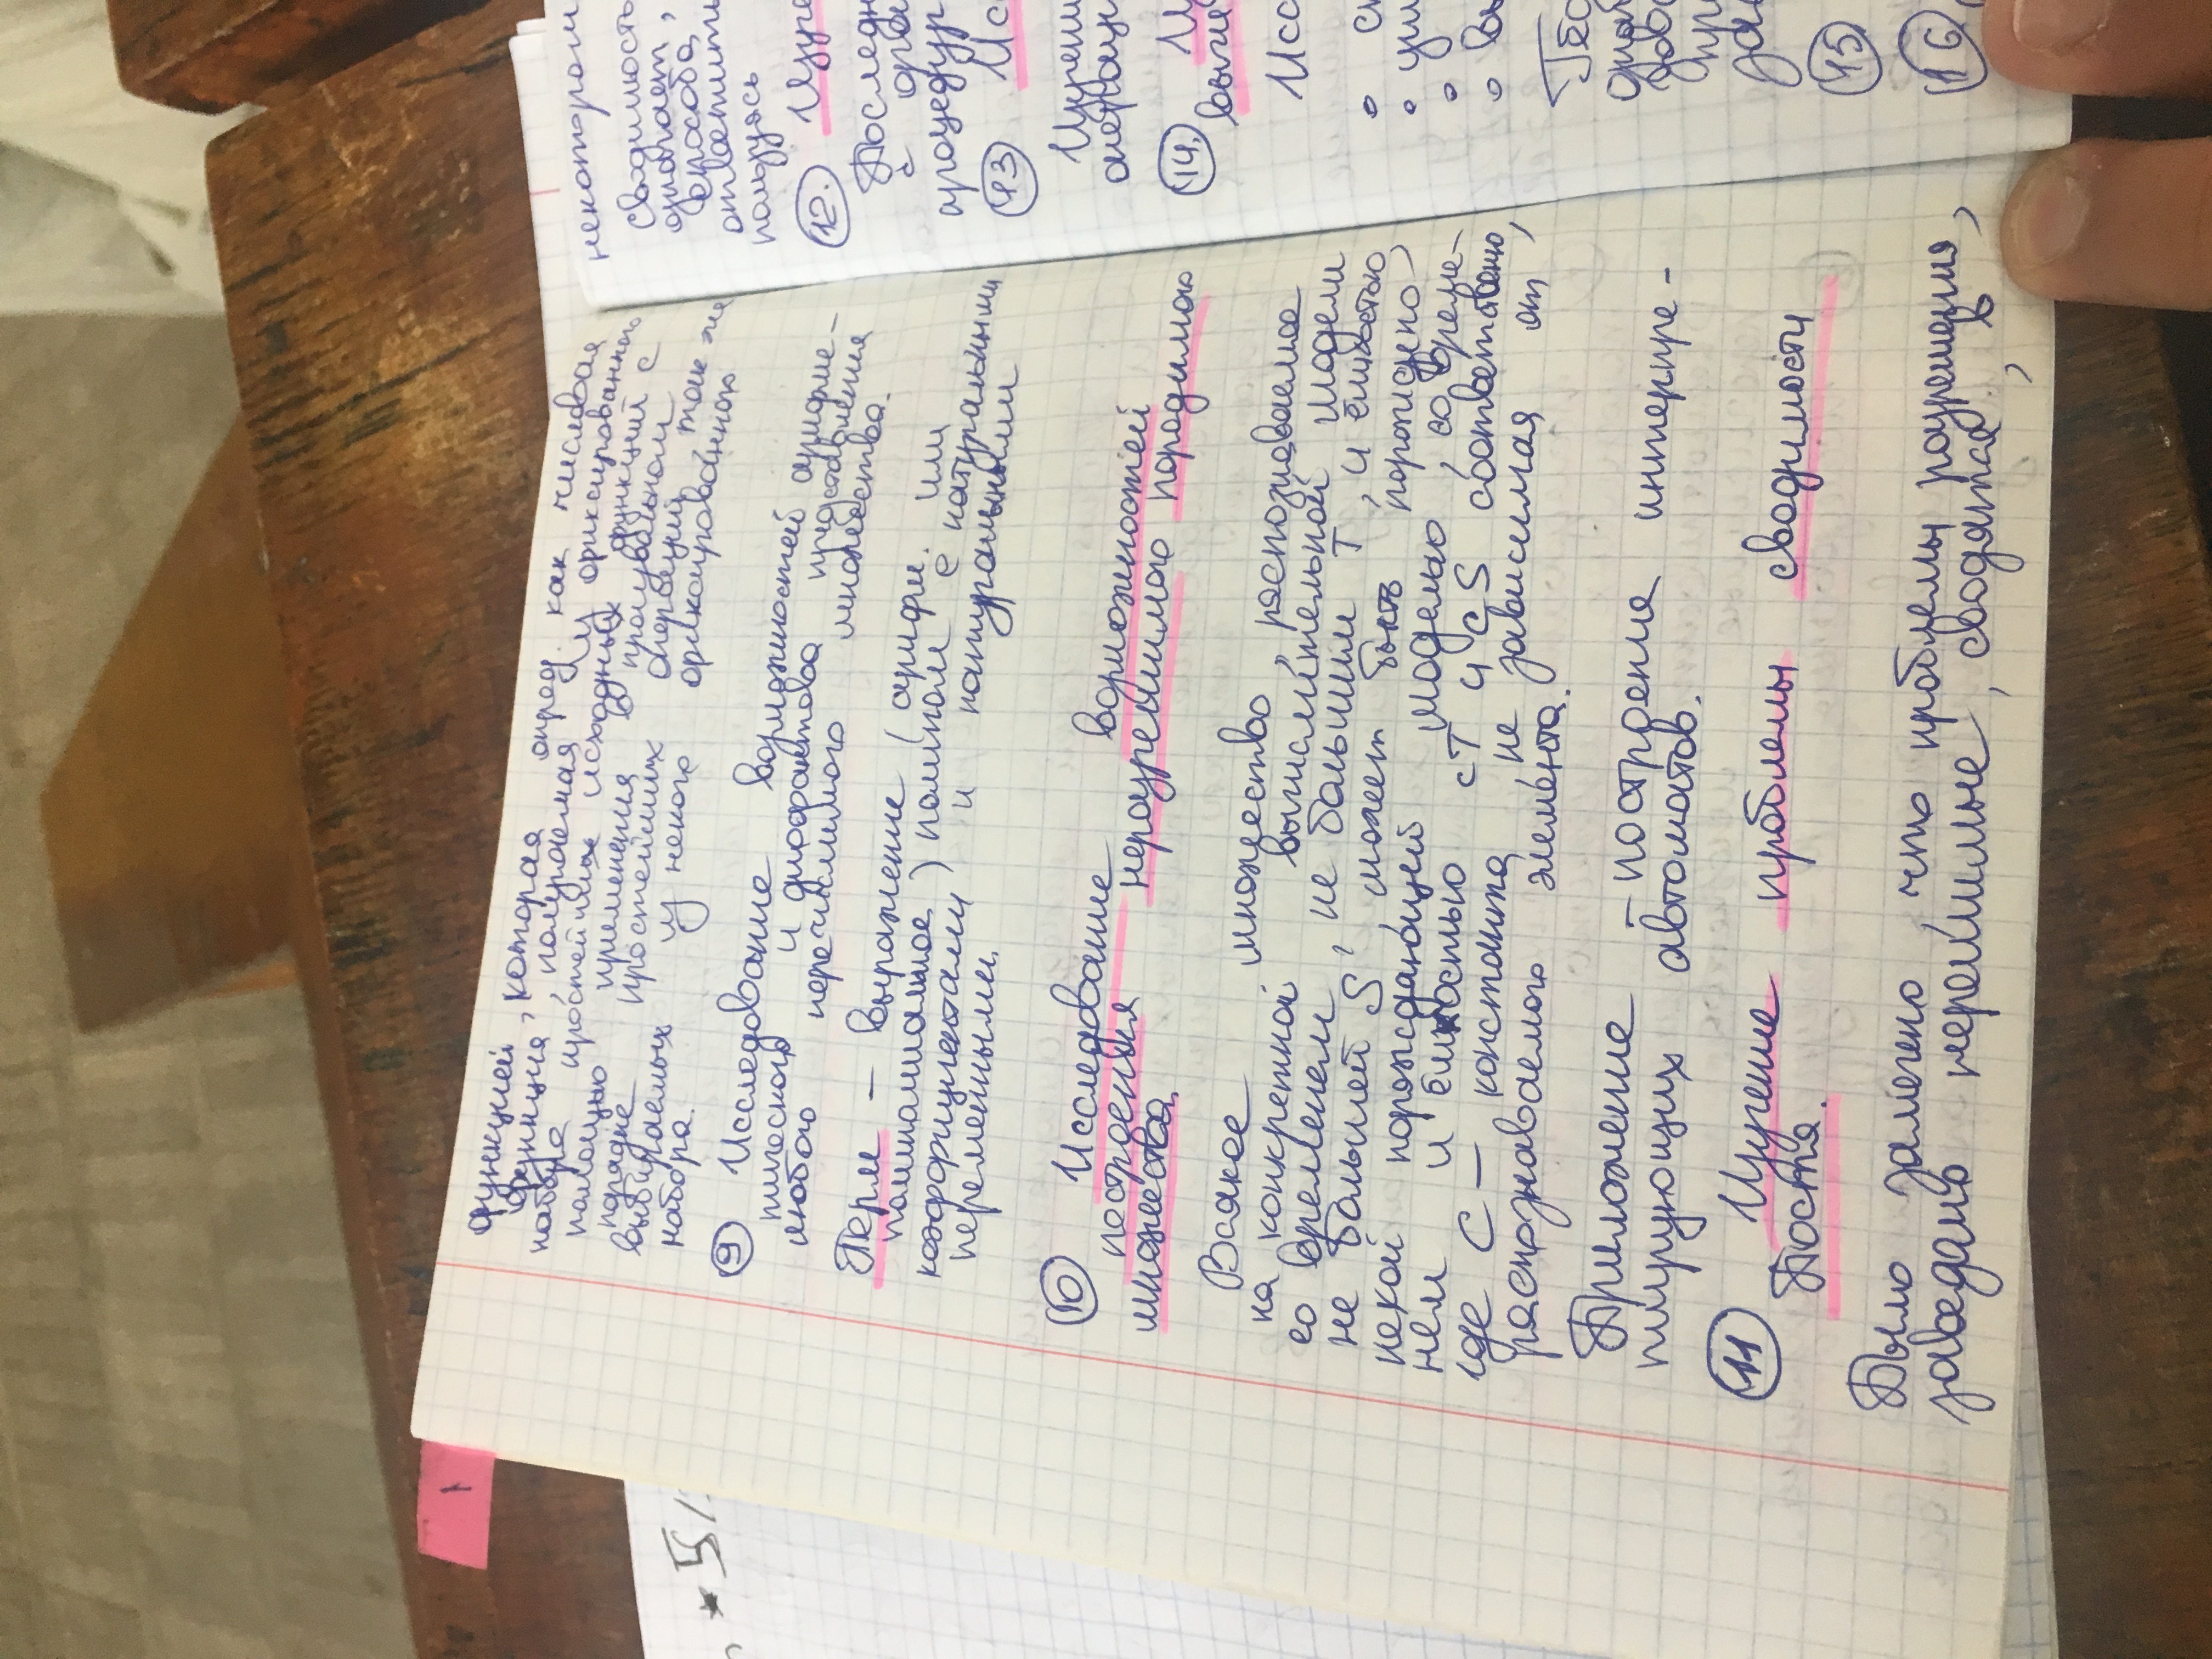 1
* 5/
функцией, которая опред. как числовая
функция, получаемая из фиксированного
набора простейших исходных функций с
помощью применения в произвольном
порядке простейших операций, так же
выбираемых из некого фиксированного
набора.
9 Исследование возможностей арифме-
тического и диофантова представления
любого перечислимого множества.
Терм – выражение (арифм. или
полиномиальное) полином с натуральными
коэффициентами и натуральными
переменными.
10 Исследование возможностей
построения неразрешимого породимого
множества.
Всякое множество, распознаваемое
на конкретной вычислительной модели
со временем, не большим T, и ёмкостью,
не большей S, может быть порождено
некой порождающей моделью, со време-
нем и ёмкостью cT и cS соответственно,
где C – константа, не зависимая от
распознаваемого элемента.
Приложение – построение интерпре-
тирующих автоматов.
11 Изучение проблемы сводимости
Поста.
Было замечено, что проблемы разрешения,
заведомо нерешимые, сводятся, в
некотором
сводимость
означает,
способа,
ответить
пользуясь
12. Изуче
Последн
с ора
процедур
13 Исс
Изучени
операци
14. Из
вычи
Исс
• сл
• ум
•
• вы
Тео
пр
15
16